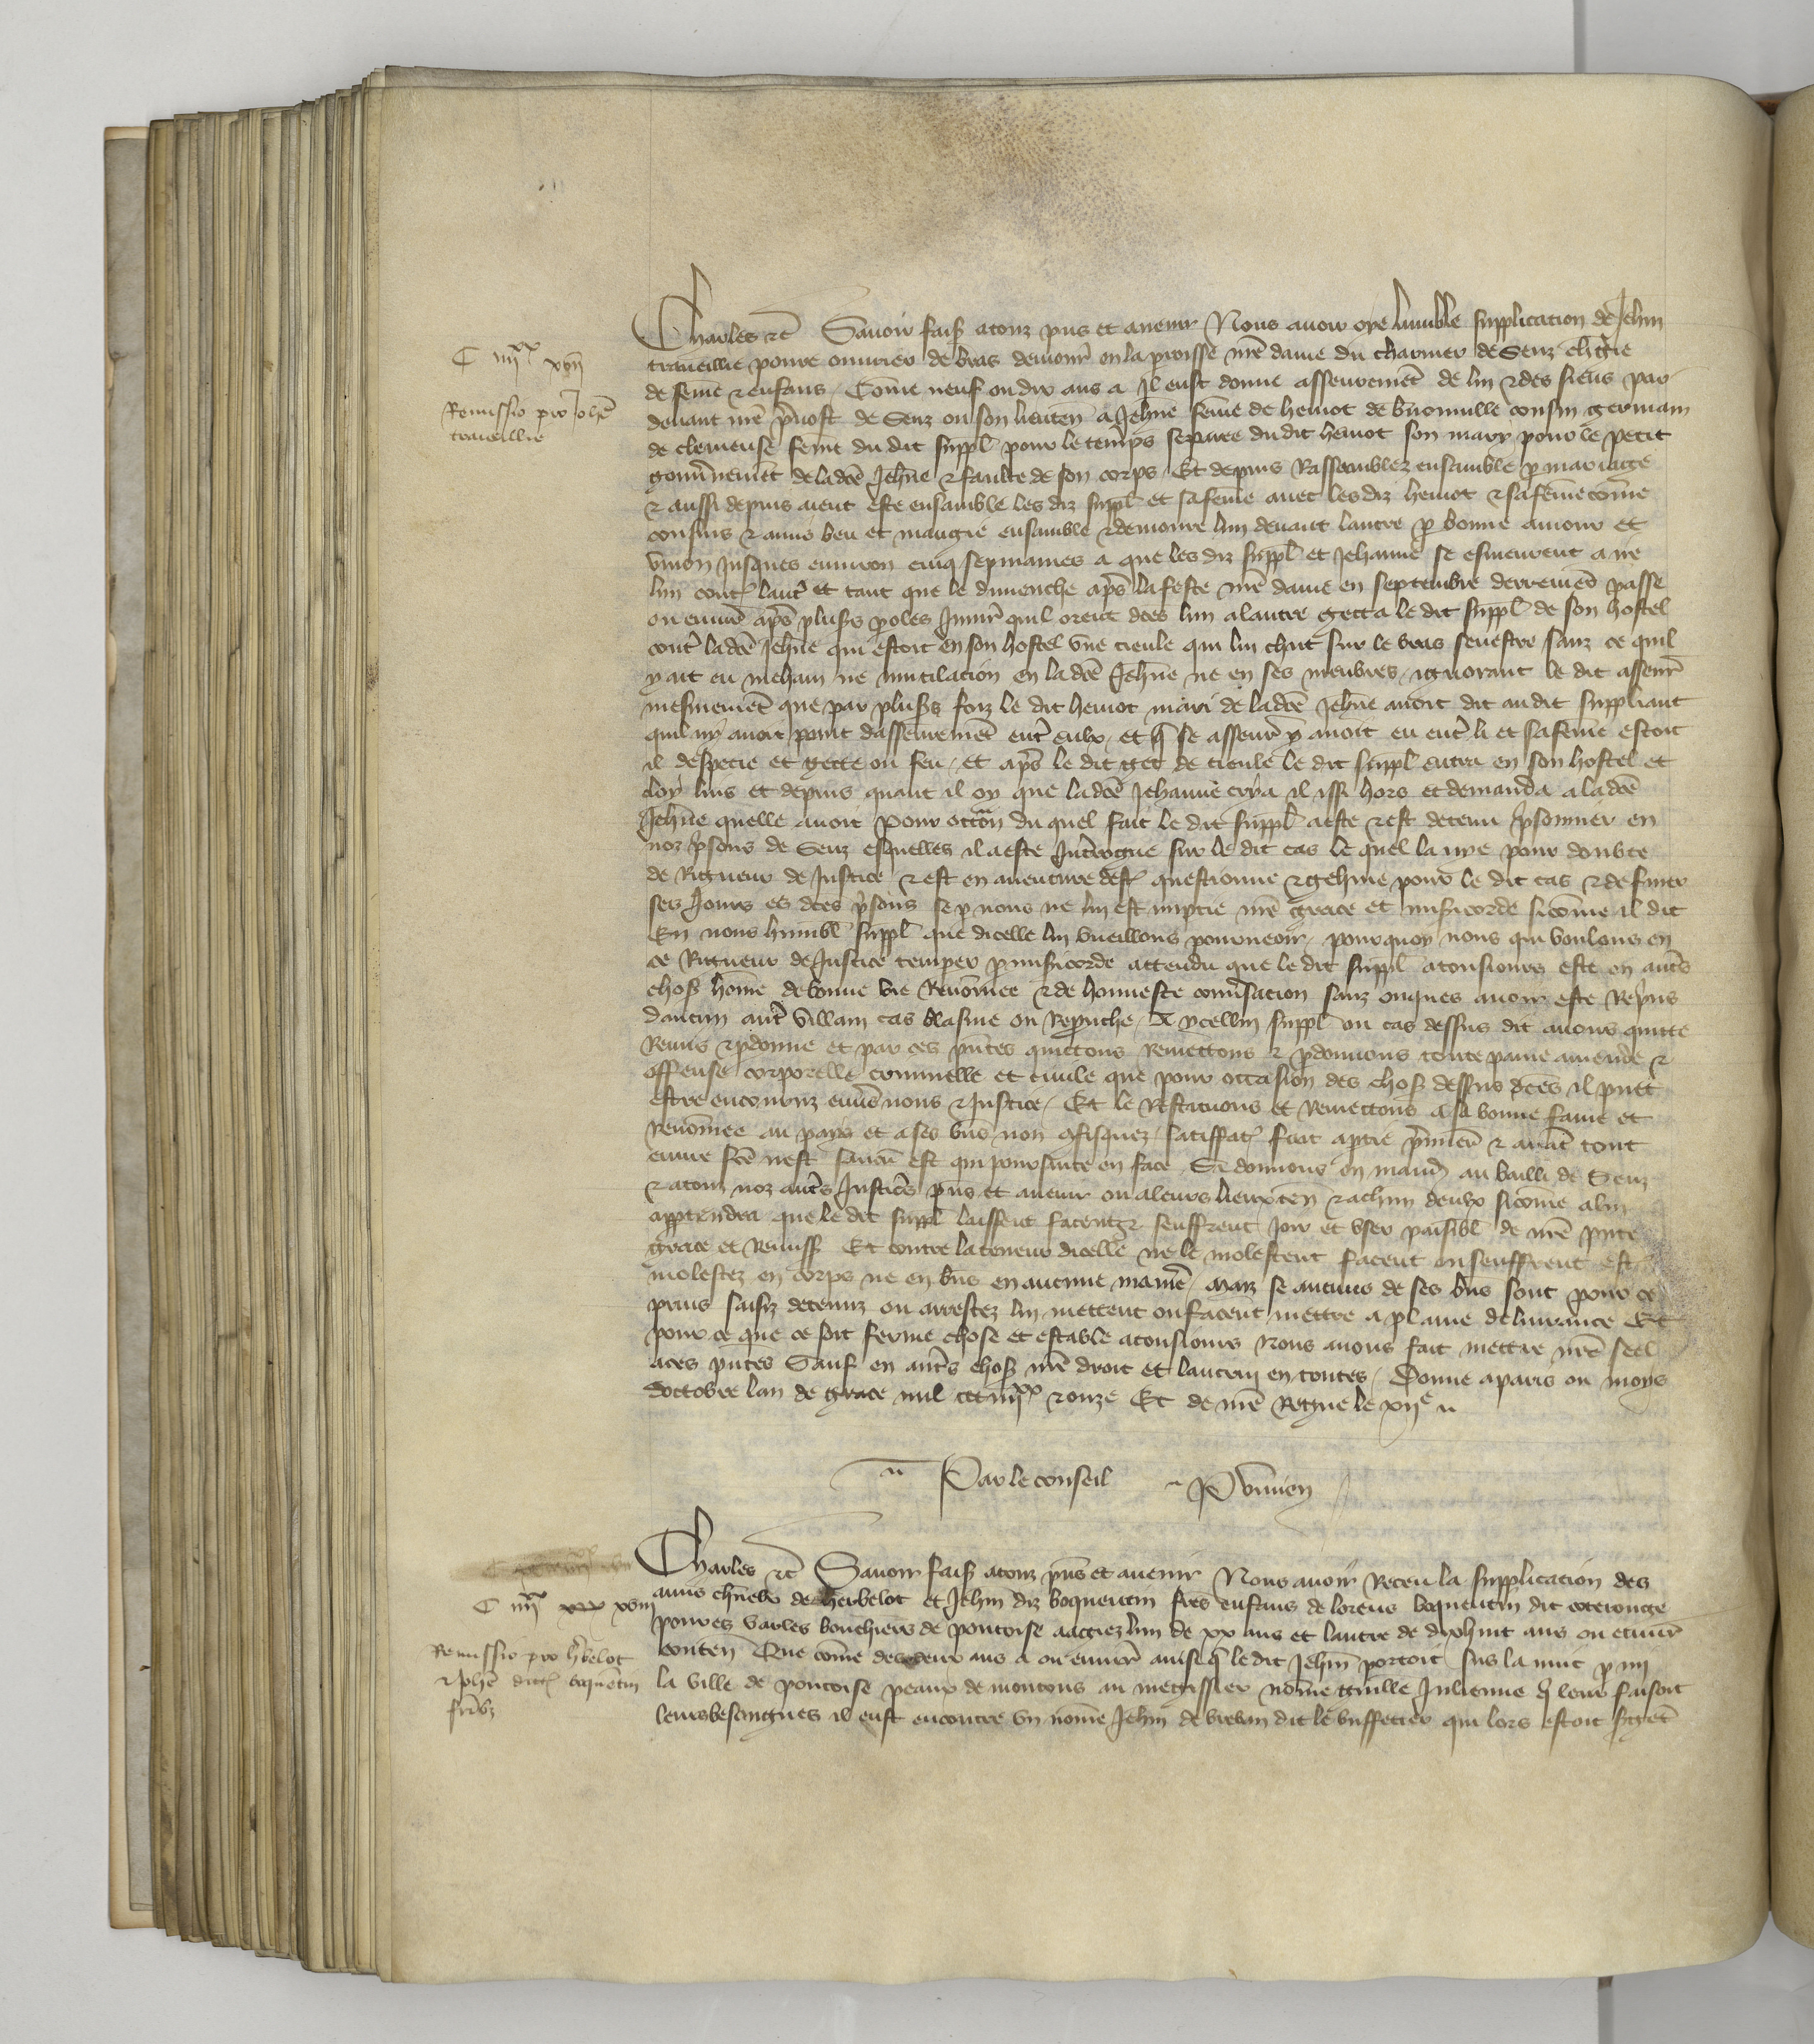 C iiiixx xvii
Remissio pro Johe
traveillie
Charles etc Savoir faiz a touz pns et avenir Nous avoir oye lumble supplicacion de Jehin
traveillie povre ouvrier de bras demour en la proisse nre dame du charnier de Senz chgie
de feme & enfans Come neuf ou dix ans a Il eust donne asseurement de lui & des siens par
devant nre pvost de Senz ou son lieuten a Jehne feme de hemot de cousin germain
de clemense feme du dit suppl pour le temps separee du dit hemot son mary pour le petit
gouvnement de la dce Jehne & faulte de son corps Et depuis Rassemblez ensamble p mariage
& aussi depuis aient este ensamble les diz suppl et sa feme avec les diz hemot & sa feme come
cousins & amis beu et mangie ensamble & demoure lun devant lautre p bonne amour et
union jusques environ cinq sepmaines a que les diz suppl et Jehanne se esmeurent a ire
lun cont laut et tant que le dimenche aps la feste nre dame en septembre derrenier passe
ou environ aps plusrs poles Iniur quil orent dces lun a lautre getta le dit suppl de son hostel
cont la dce Jehne qui estoit en son hostel une tieule qui lui chut sur le bras senestre sanz ce quil
y ait eu mehain ne mutilacion en la dce Jehne ne en ses menbres ignorant le dit asseur
mesmement que par plusrs foiz le dit hemot mari de la dce Jehne avoit dit au dit suppliant
quil ny avoit point dasseurement ent eulx et q se asseur y avoit eu ent li et sa feme estoit
il despecie et gette ou feu et aps le dit get de tieule le dit suppl entra en son hostel et
cloy luis et depuis quant il oy que la dce Jehanne crya il issi hors et demanda a la dce
Jehne quelle avoit Pour occon du quel fait le dit suppl a este & est detenu psonnier en
noz psons de Senz esquelles il a este Interrogue sur le dit cas le quel la nye pour doubte
de Rigueur de Justice & est en aventure dest questionne & gehine pour le dit cas & de finer
ses Jours es dces psons se p nous ne lui est imptie nre grace et misicorde sicome il dit
En nous humbl suppl que dicelle lui vueillons pourveoir pourquoy nous qui voulons en
ce Rigueur de Justice temper p misicorde attendu que le dit suppl a tousiours este en auts
chos home de bonne vie Renomee & de honneste convsacion sanz onques avoir este Repns
daucun aut villain cas blasme ou Repruche A ycellui suppl ou cas dessus dit avons quitte
Remis & pdonne et par ces pntes quictons Remettons & pdonnons toute paine amende &
offense corporelle criminelle et civile que pour occasion des chos dessus dces il puet
estre encouruz envs nous & Justice Et le Restituons et Remettons a sa bonne fame et
Renomee au pays et a ses bns non cfisquez satiffact fait aptie pmier & avant tout
euvre fce nest savcu est qui poursuite en face Si donnons en mand au bailli de Senz
& a touz noz auts Justices pns et avenir ou a leurs lieuxten & a chun deulx sicome a lui
apptendra que le dit suppl laissent facent & seuffrent joir et user paisibl de nre pnte
grace et Remiss Et contre la teneur dicelle ne le molestent facent ou seuffrent est
molestez en corps ne en bns en aucune maniere maiz se aucuns de ses bns sont pour ce
prins saisiz detenuz ou arrestez lui mettent ou facent mettre a plaine delivrance Et
pour ce que ce soit ferme chose et estable a tousiours Nous avons fait mettre nre seel
a ces pntes Sauf en auts chos nre droit et lautrui en toutes Donne a paris ou moys
doctobre lan de grace mil ccc iiiixx & onze Et de nre Regne le xiie
Par le conseil P
C iiiixx xviii
Remissio pro hbelot
& Johe dict boquetin
frbz
Charles etc Savoir faiz a touz pns et avenir Nous avoir Receu la supplicacion des
amis chnelx de herbelot et Jehin diz boquentin fres enfans de lorens boquentin dit
povres varles bouchiers de pontoise aagiez lun de xx ans et lautre de dixhuit ans ou envir
conten Que come de deux ans a ou envir ainsi q le dit Jehin portoit sus la nuit p mi
la ville de pontoise peaux de moutons au megissier nome guille Julienne q leur faisoit
leurs besongnes il eust encontre un nome Jehin de dit le buffetier qui lors estoit sgent